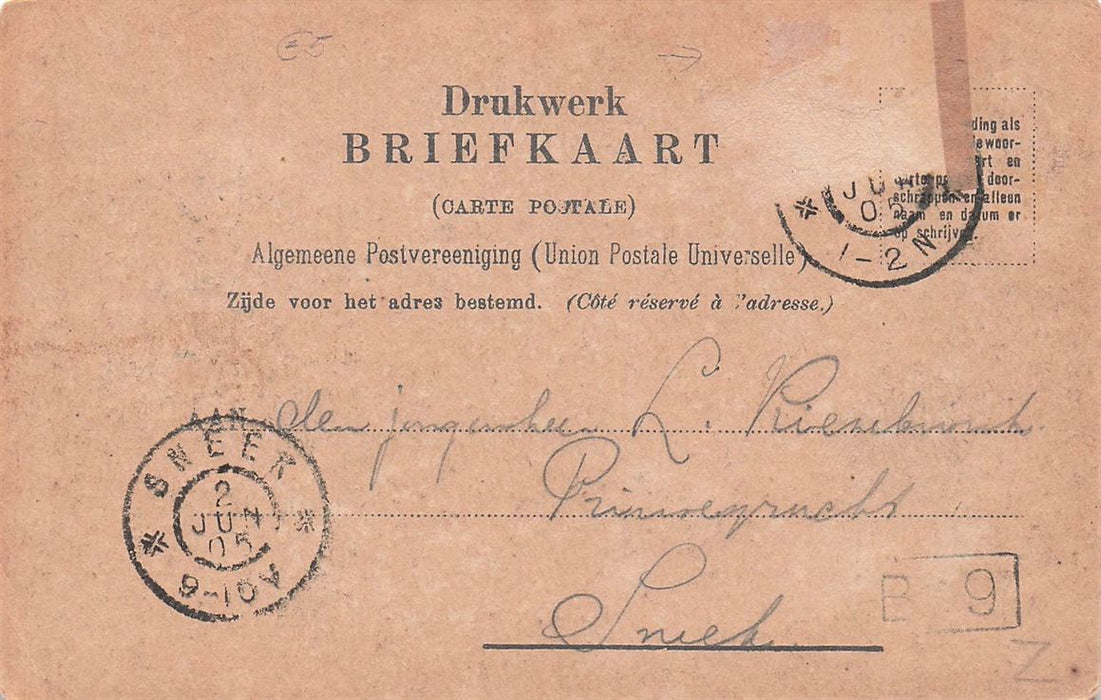 €5
Drukwerk
BRIEFKAART
(CARTE POSTALE)
Algemeene Postvereeniging (Union Postale Universelle)
Zijde voor het adres bestemd. (Côté réservé à l'adresse.)
ding als
woor-
rt en
door-
schrappen en alleen
naam en datum er
op schrijven.
JUN
05
1-2N
AAN den jongenheer L.
Prinsengracht
Sneek
SNEEK
2
JUN
05
9-10A
B 9
Z